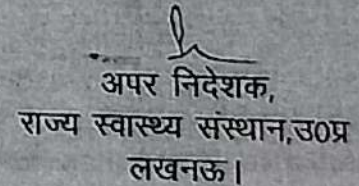 अपर निदेशक,
राज्य स्वास्थ्य संस्थान,उ०प्र
लखनऊ।